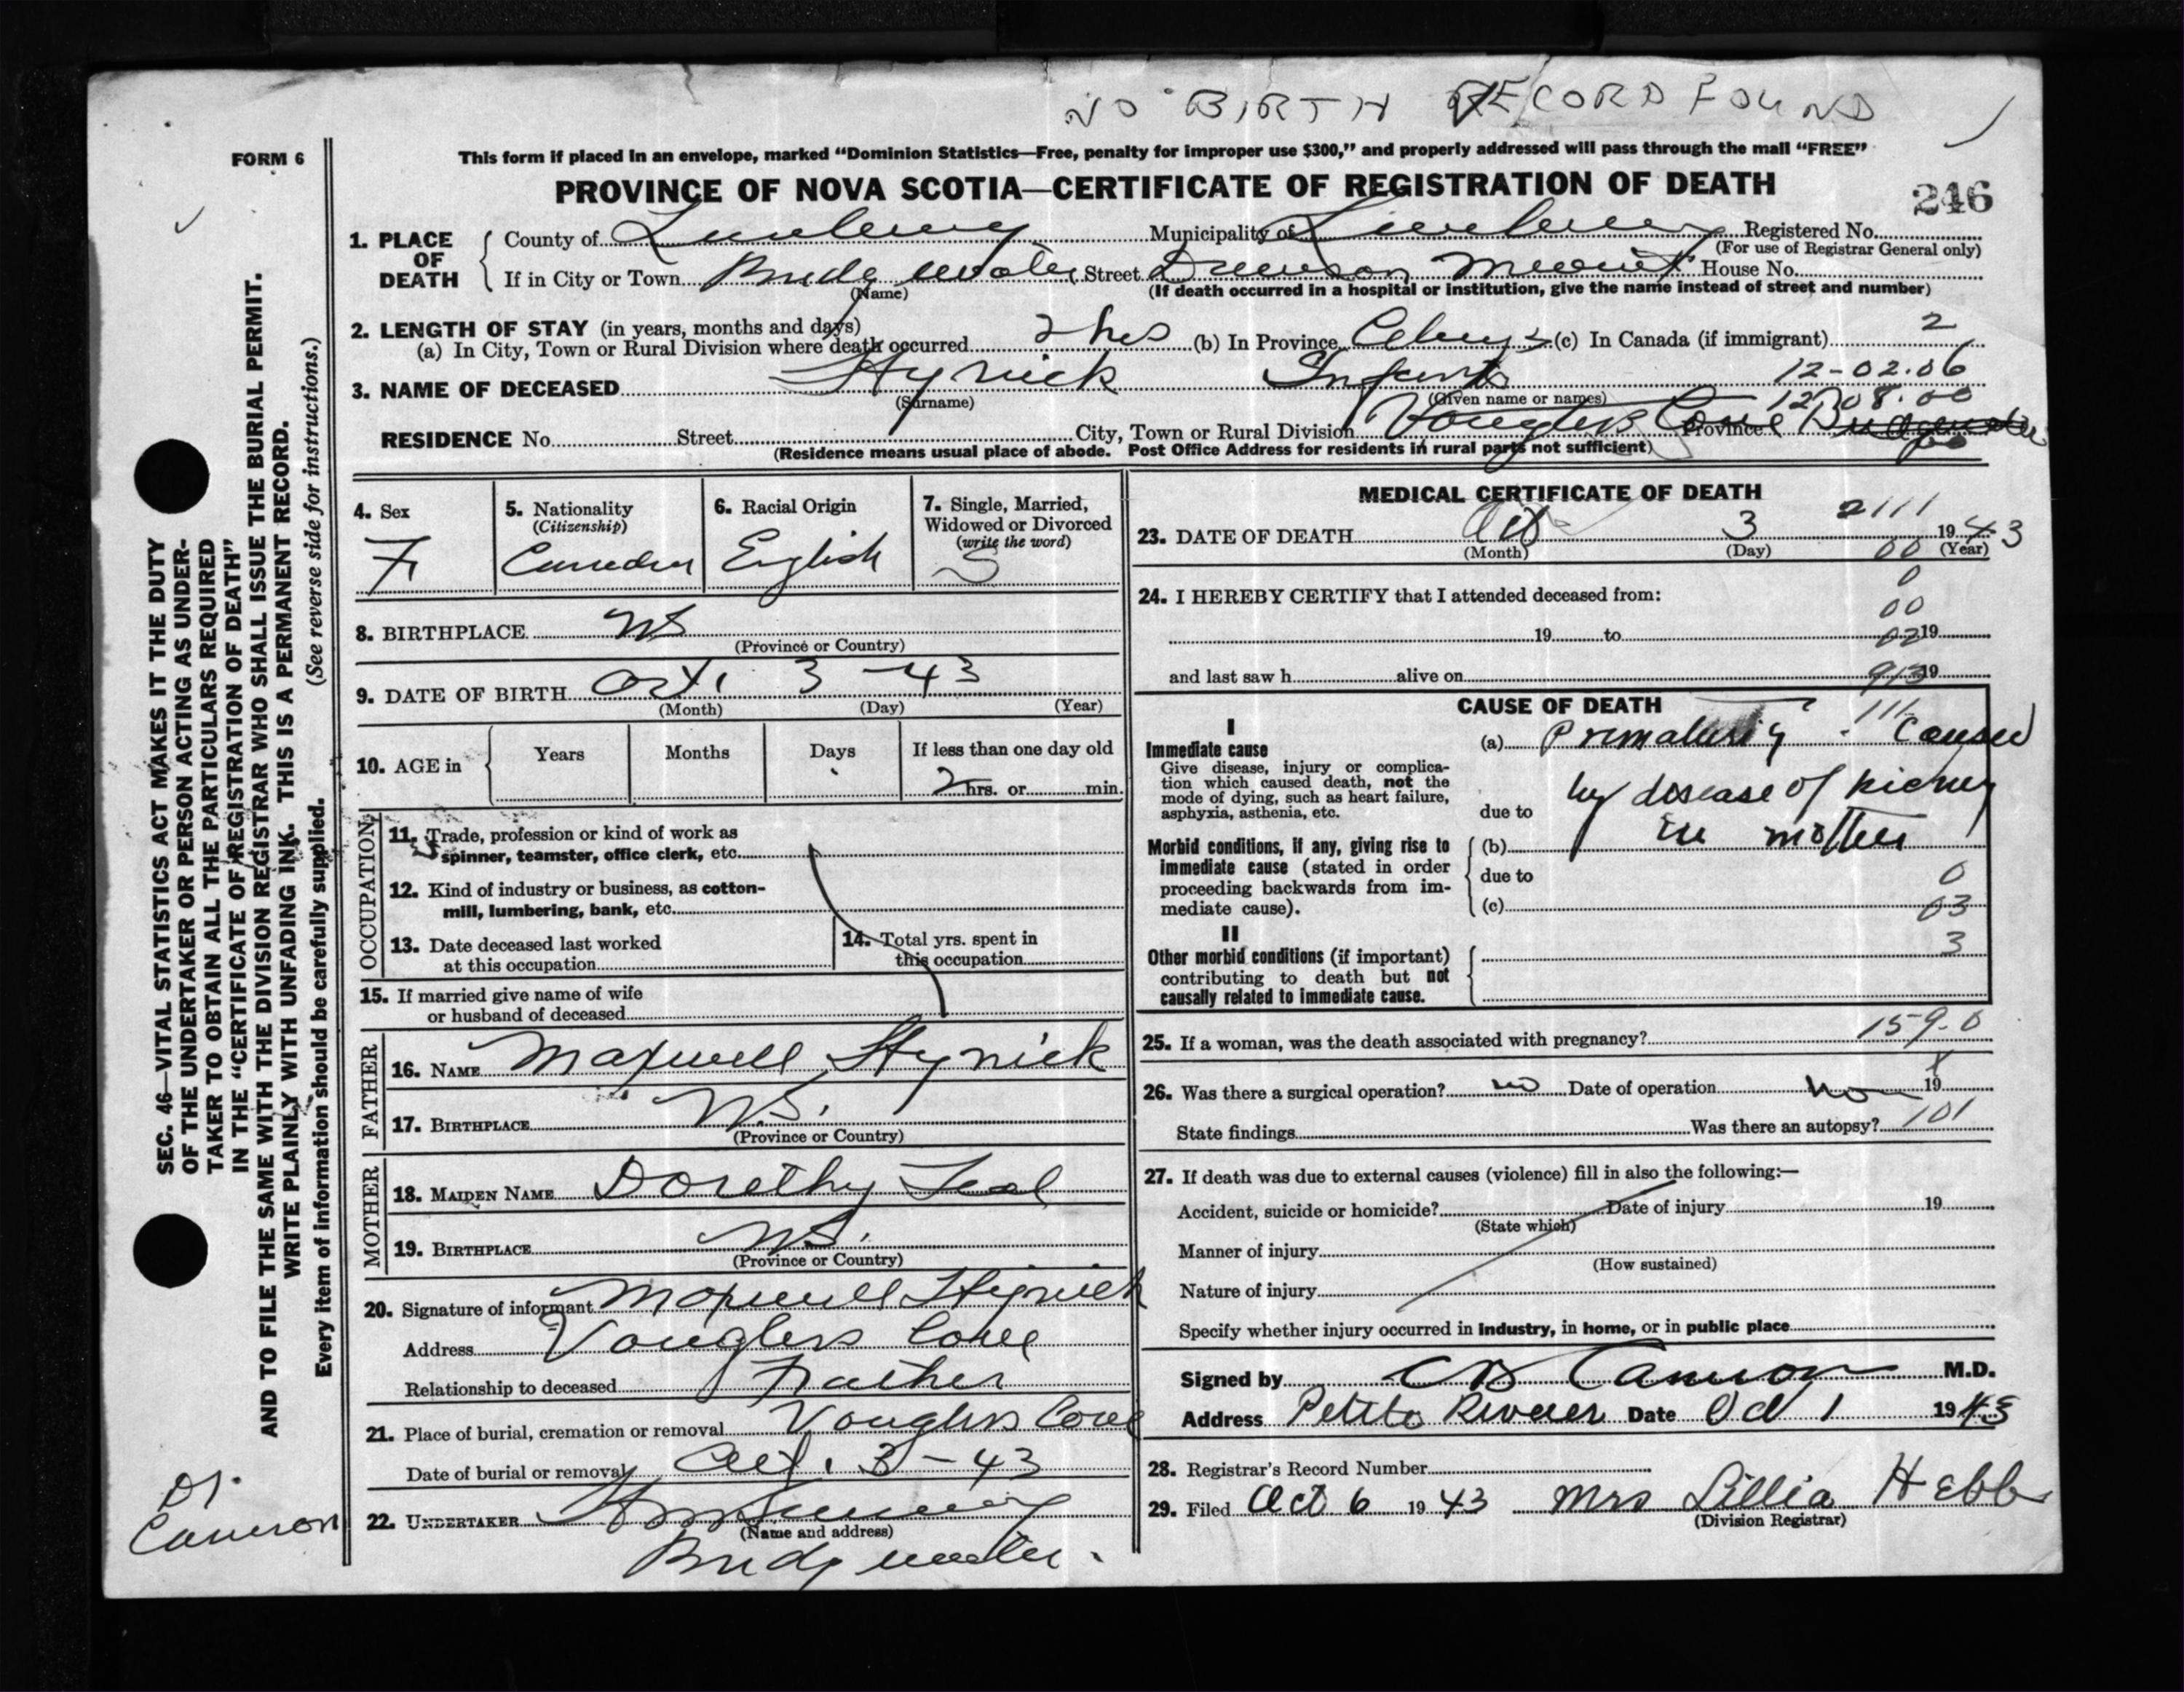 NO BIRTH RECORD FOUND
FORM 6
This form if placed in an envelope, marked “Dominion Statistics—Free, penalty for improper use $300,” and properly addressed will pass through the mail “FREE”
PROVINCE OF NOVA SCOTIA—CERTIFICATE OF REGISTRATION OF DEATH
246
1. PLACE OF DEATH { County of Lunenburg Municipality of Lunenburg Registered No.
(For use of Registrar General only)
If in City or Town Bridgewater Street Dawson House No.
(Name) (If death occurred in a hospital or institution, give the name instead of street and number)
2. LENGTH OF STAY (in years, months and days)
(a) In City, Town or Rural Division where death occurred 2 hrs (b) In Province Always (c) In Canada (if immigrant) 2
12-02.06
3. NAME OF DECEASED Hynick Infants
(Surname) (Given name or names) 12 08.00
RESIDENCE No. Street City, Town or Rural Division Vouglers Cove Province Bridgewater
(Residence means usual place of abode. Post Office Address for residents in rural parts not sufficient)
SEC. 46—VITAL STATISTICS ACT MAKES IT THE DUTY
OF THE UNDERTAKER OR PERSON ACTING AS UNDER-
TAKER TO OBTAIN ALL THE PARTICULARS REQUIRED
IN THE “CERTIFICATE OF REGISTRATION OF DEATH”
AND TO FILE THE SAME WITH THE DIVISION REGISTRAR WHO SHALL ISSUE THE BURIAL PERMIT.
WRITE PLAINLY WITH UNFADING INK. THIS IS A PERMANENT RECORD.
Every item of information should be carefully supplied. (See reverse side for instructions.)
4. Sex F
5. Nationality (Citizenship) Canadian
6. Racial Origin English
7. Single, Married, Widowed or Divorced (write the word) S
8. BIRTHPLACE NS
(Province or Country)
9. DATE OF BIRTH Oct. 3 - 43
(Month) (Day) (Year)
10. AGE in { Years Months Days If less than one day old
2 hrs. or min.
OCCUPATION
11. Trade, profession or kind of work as
spinner, teamster, office clerk, etc.
12. Kind of industry or business, as cotton-
mill, lumbering, bank, etc.
13. Date deceased last worked
at this occupation
14. Total yrs. spent in
this occupation
15. If married give name of wife
or husband of deceased
FATHER
16. NAME Maxwell Hynick
17. BIRTHPLACE N.S.
(Province or Country)
MOTHER
18. MAIDEN NAME Dorothy Teal
19. BIRTHPLACE N.S.
(Province or Country)
20. Signature of informant Maxwell Hynick
Address Vouglers Cove
Relationship to deceased Father
21. Place of burial, cremation or removal Vouglers Cove
Date of burial or removal Oct. 3 - 43
22. UNDERTAKER
(Name and address)
Bridgewater.
Dr.
Cameron
MEDICAL CERTIFICATE OF DEATH
2111
23. DATE OF DEATH Oct 3 1943
(Month) (Day) 00 (Year)
0
24. I HEREBY CERTIFY that I attended deceased from:
00
19 to 02 19
and last saw h alive on 913 19
CAUSE OF DEATH
111
I
Immediate cause
Give disease, injury or complica-
tion which caused death, not the
mode of dying, such as heart failure,
asphyxia, asthenia, etc.
(a) Prematurity - caused
due to by disease of kidney
Morbid conditions, if any, giving rise to
immediate cause (stated in order
proceeding backwards from im-
mediate cause).
(b) in mother
due to 0
(c) 03
II
3
Other morbid conditions (if important)
contributing to death but not
causally related to immediate cause.
25. If a woman, was the death associated with pregnancy? 159-0
X
26. Was there a surgical operation? no Date of operation no 19
State findings Was there an autopsy? 101
27. If death was due to external causes (violence) fill in also the following:—
Accident, suicide or homicide? Date of injury 19
(State which)
Manner of injury
(How sustained)
Nature of injury
Specify whether injury occurred in industry, in home, or in public place
Signed by Cameron M.D.
Address Petite Riviere Date Oct 1 1943
28. Registrar's Record Number
29. Filed Oct 6 1943 Mrs Lillia Hebb
(Division Registrar)